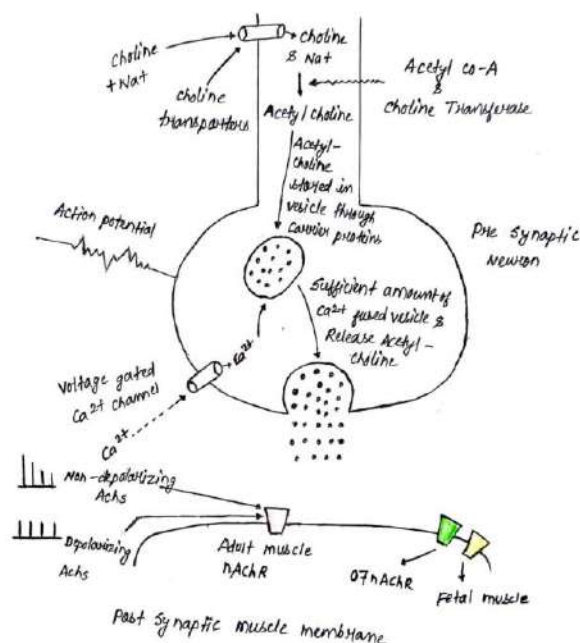 Choline
+ Na+
choline
& Na+
choline
transporters
Acetyl co-A
&
Choline Transferase
Acetyl choline
Acetyl-
choline
stored in
vesicle through
carrier proteins
Action potential
Pre synaptic
neuron
Sufficient amount of
Ca2+ fused vesicle &
Release Acetyl-
choline
Ca2+
Voltage gated
Ca2+ channel
Ca2+
Non-depolarizing
Achs
Depolarizing
Achs
Adult muscle
nAchR
α7 nAchR
Fetal muscle
Post synaptic muscle membrane